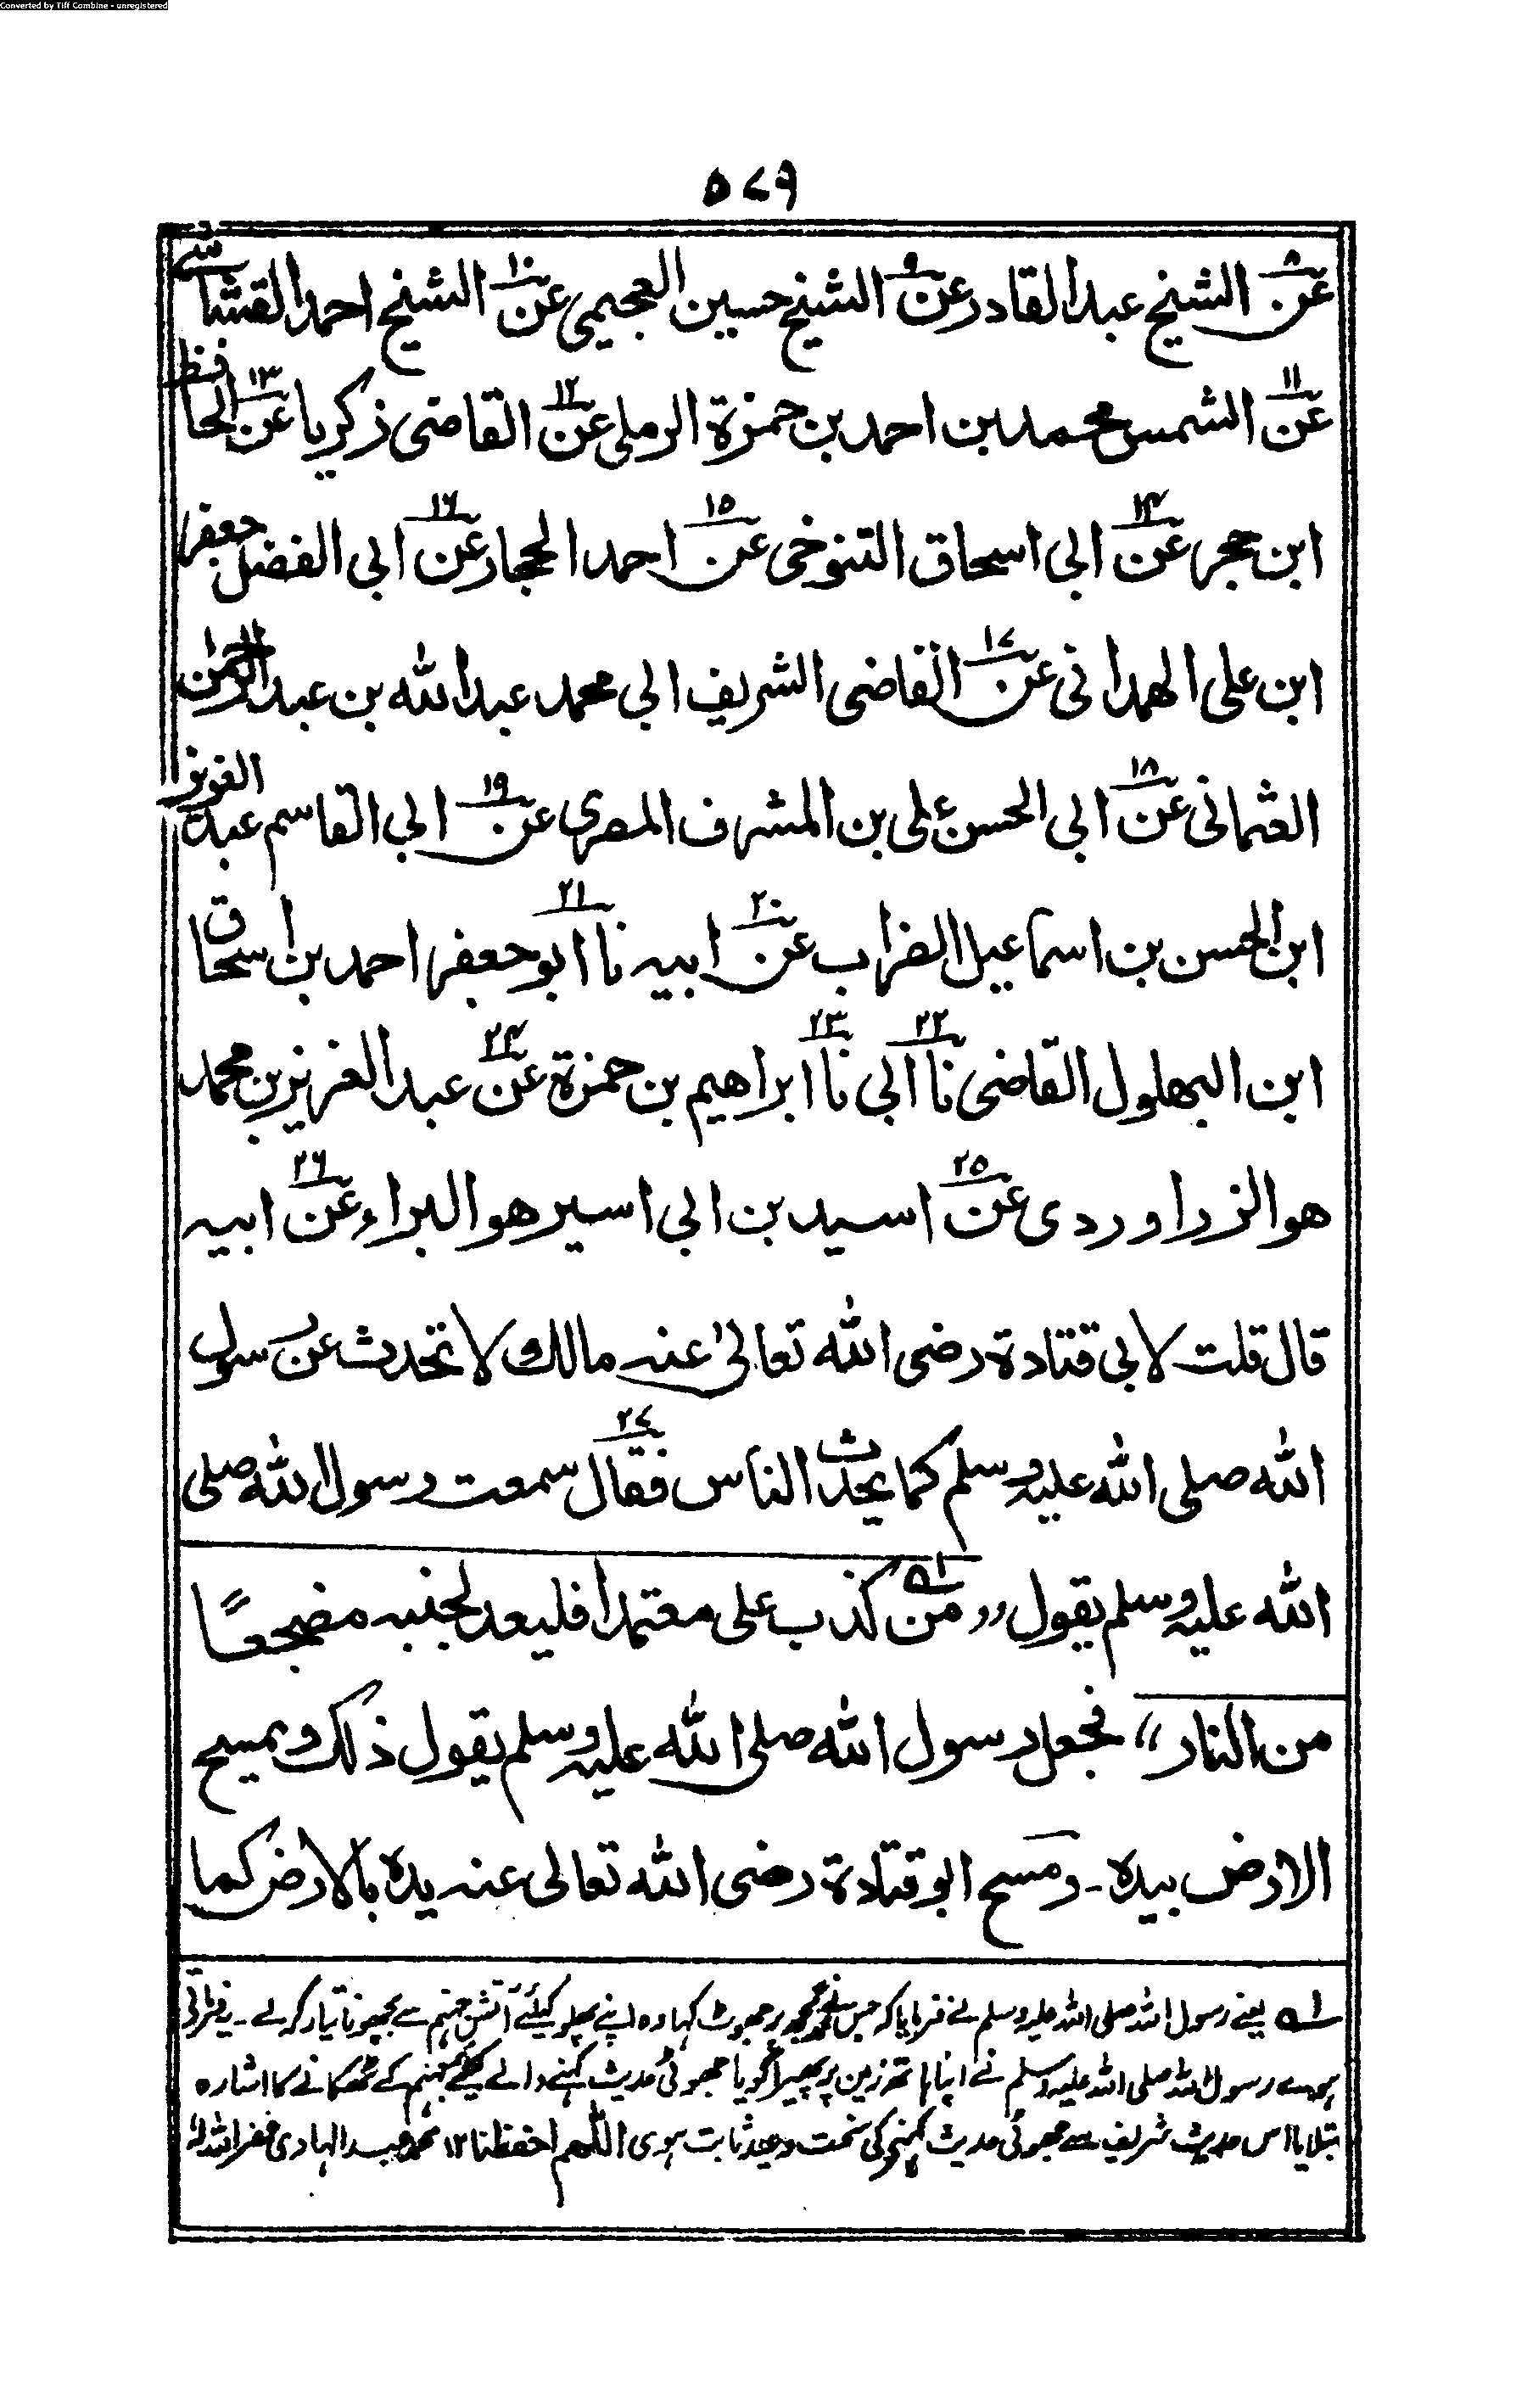 Converted by Tiff Combine - unregistered
۵۷۹
عن۸ الشيخ عبد القادر عن۹ الشيخ حسين العجيمی عن۱۰ الشيخ احمد القشاشی
عن۱۱ الشمس محمد بن احمد بن حمزة الرملی عن۱۲ القاضی زكريا عن۱۳ الحافظ
ابن حجر عن۱۴ ابی اسحاق التنوخی عن۱۵ احمد الحجار عن۱۶ ابی الفضل جعفر
ابن علی الهمدانی عن۱۷ القاضی الشريف ابی محمد عبد الله بن عبد الرحمن
العثمانی عن۱۸ ابی الحسن علی بن المشرف المصری عن۱۹ ابی القاسم عبد العزيز
ابن الحسن بن اسماعيل الضراب عن۲۰ ابيه نا۲۱ ابو جعفر احمد بن اسحاق
ابن البهلول القاضی نا۲۲ ابی نا۲۳ ابراهيم بن حمزة عن۲۴ عبد العزيز بن محمد
هو الزراوردی عن۲۵ اسيد بن ابی اسير هو البراء عن۲۶ ابيه
قال قلت لابی قتادة رضی الله تعالیٰ عنه مالك لا تحدث عن رسول
الله صلی الله عليه وسلم كما يحدث الناس فقال۲۷ سمعت رسول الله صلی
الله عليه وسلم يقول ,,من۵۱ كذب علی معتمدا فليعد لجنبه مضجعًا
من النار،، فجعل رسول الله صلی الله عليه وسلم يقول ذلك ويمسح
الارض بيده۔ ومسح ابو قتادة رضی الله تعالی عنه يده بالارض كما
۵۱ یعنے رسول اللہ صلی اللہ علیہ وسلم نے فرمایا کہ جس نے مجھ پر جھوٹ کہا وہ اپنے پہلو کیلئے آتش جہنم سے بچھونا تیار کرلے۔ یہ فرماتے
ہوے رسول اللہ صلی اللہ علیہ وسلم نے اپنا ہاتھ زمین پر پھیرا گویا جھوٹی حدیث کہنے والے کیلئے جہنم کے ٹھکانے کا اشارہ
بتلایا اس حدیث شریف سے جھوٹی حدیث کہنے کی سخت وعید ثابت ہوی اللّٰھم احفظنا ۱۲ محمد عبد الہادی غفر اللہ لہ